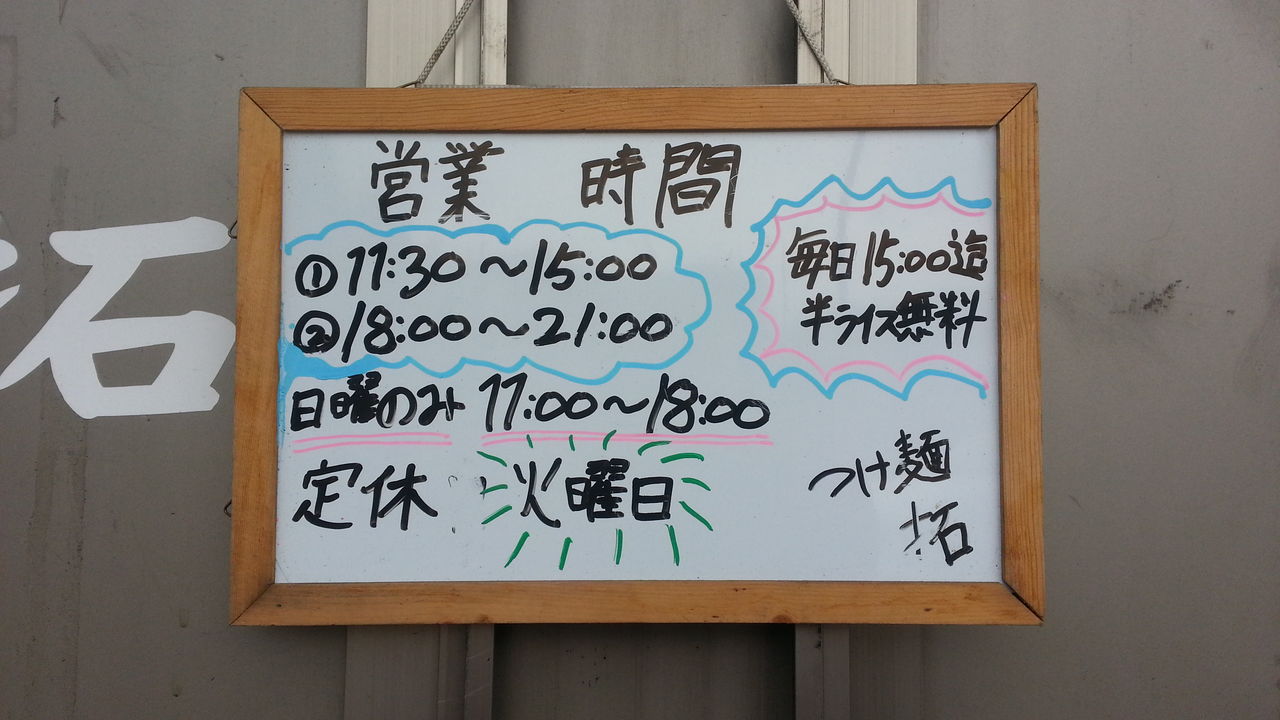 営業 時間
①11:30～15:00
②18:00～21:00
日曜のみ 11:00～18:00
定休 火曜日
毎日15:00迄
半ライス無料
つけ麺
拓
石